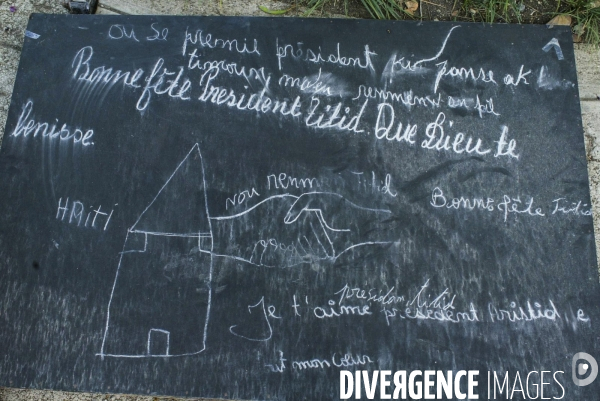 ou se premie président ki panse ak
timoun
renmen
Bonne fête Président Titid Que Dieu te
Denisse.
nou renm Titid
Bonne fête Titid
HAiti
presidan titid
Je t'aime président Aristid e
mon cœur
DIVERGENCE IMAGES